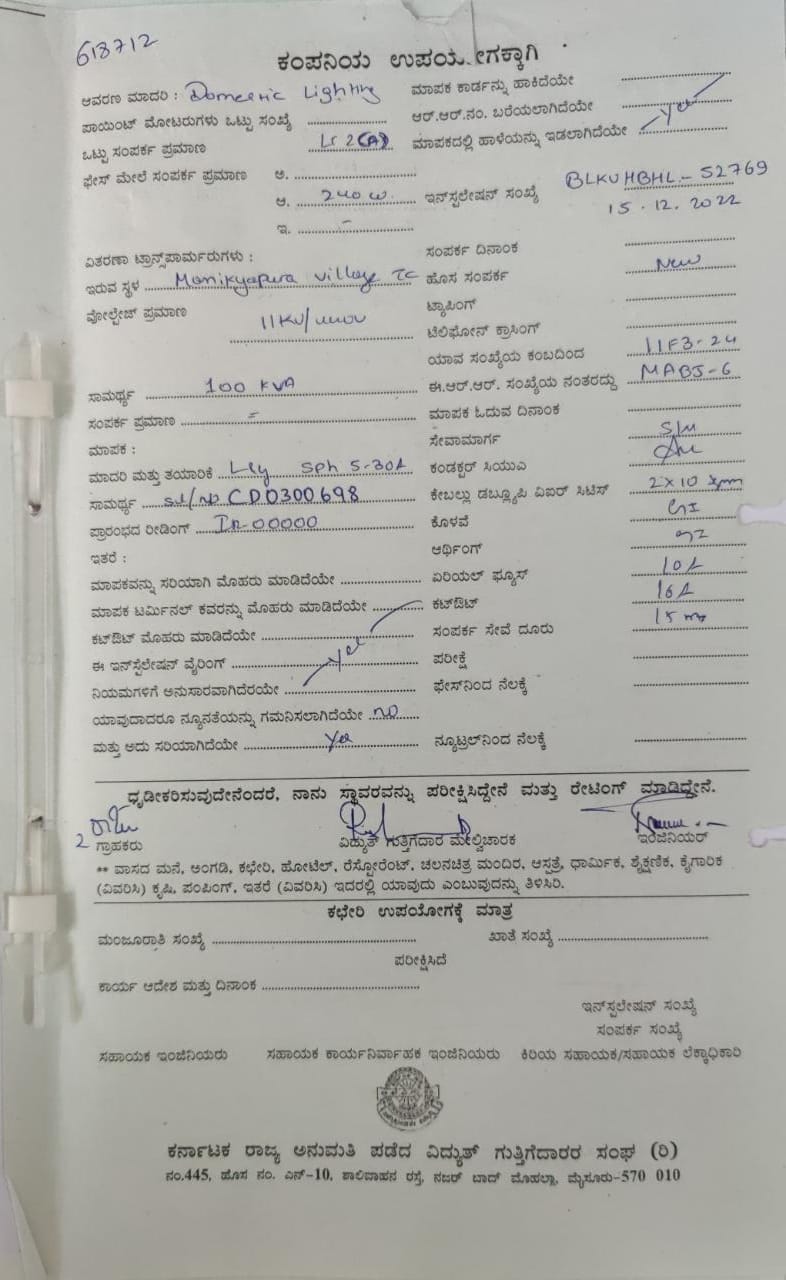 613712
ಕಂಪನಿಯ ಉಪಯೋಗಕ್ಕಾಗಿ
ಆವರಣ ಮಾದರಿ : Domestic Lighting
ಮಾಪಕ ಕಾರ್ಡನ್ನು ಹಾಕಿದೆಯೇ
ಪಾಯಿಂಟ್ ಮೋಟರುಗಳು ಒಟ್ಟು ಸಂಖ್ಯೆ
ಆರ್.ಆರ್.ನಂ. ಬರೆಯಲಾಗಿದೆಯೇ
ಒಟ್ಟು ಸಂಪರ್ಕ ಪ್ರಮಾಣ Lt 2(A)
ಮಾಪಕದಲ್ಲಿ ಹಾಳೆಯನ್ನು ಇಡಲಾಗಿದೆಯೇ Yes
ಫೇಸ್ ಮೇಲೆ ಸಂಪರ್ಕ ಪ್ರಮಾಣ ಅ.
ಆ. 240 W.
ಇನ್‌ಸ್ಪಲೇಷನ್ ಸಂಖ್ಯೆ BLKUHBHL-52769
15.12.2022
ಇ. -
ವಿತರಣಾ ಟ್ರಾನ್ಸ್‌ಪಾರ್ಮರುಗಳು :
ಸಂಪರ್ಕ ದಿನಾಂಕ
ಇರುವ ಸ್ಥಳ Manikyapura Village TC
ಹೊಸ ಸಂಪರ್ಕ New
ವೋಲ್ಟೇಜ್ ಪ್ರಮಾಣ 11KV/
ಟ್ಯಾಪಿಂಗ್
ಟೆಲಿಫೋನ್ ಕ್ರಾಸಿಂಗ್
ಯಾವ ಸಂಖ್ಯೆಯ ಕಂಬದಿಂದ 11F3-24
ಸಾಮರ್ಥ್ಯ 100 KVA
ಈ.ಆರ್.ಆರ್. ಸಂಖ್ಯೆಯ ನಂತರದ್ದು MABJ-6
ಸಂಪರ್ಕ ಪ್ರಮಾಣ
ಮಾಪಕ ಓದುವ ದಿನಾಂಕ
ಮಾಪಕ :
ಸೇವಾಮಾರ್ಗ S/M
ಮಾದರಿ ಮತ್ತು ತಯಾರಿಕೆ SPh 5-30A
ಕಂಡಕ್ಟರ್ ಸಿಯುಎ
ಸಾಮರ್ಥ್ಯ CD0300698
ಕೇಬಲ್ಲು ಡಬ್ಲ್ಯೂಪಿ ವಿಐರ್ ಸಿಟಿಸ್ 2x10
ಪ್ರಾರಂಭದ ರೀಡಿಂಗ್ IR-00000
ಕೊಳವೆ GI
ಇತರೆ :
ಆರ್ಥಿಂಗ್
ಮಾಪಕವನ್ನು ಸರಿಯಾಗಿ ಮೊಹರು ಮಾಡಿದೆಯೇ
ಏರಿಯಲ್ ಫ್ಯೂಸ್ 10A
ಮಾಪಕ ಟರ್ಮಿನಲ್ ಕವರನ್ನು ಮೊಹರು ಮಾಡಿದೆಯೇ
ಕಟ್‌ಔಟ್ 16A
ಕಟ್‌ಔಟ್ ಮೊಹರು ಮಾಡಿದೆಯೇ
ಸಂಪರ್ಕ ಸೇವೆ ದೂರು 15 m
ಈ ಇನ್‌ಸ್ಟಲೇಷನ್ ವೈರಿಂಗ್ Yes
ಪರೀಕ್ಷೆ
ನಿಯಮಗಳಿಗೆ ಅನುಸಾರವಾಗಿದೆರಯೇ
ಫೇಸ್‌ನಿಂದ ನೆಲಕ್ಕೆ
ಯಾವುದಾದರೂ ನ್ಯೂನತೆಯನ್ನು ಗಮನಿಸಲಾಗಿದೆಯೇ no
ಮತ್ತು ಅದು ಸರಿಯಾಗಿದೆಯೇ Yes
ನ್ಯೂಟ್ರಲ್‌ನಿಂದ ನೆಲಕ್ಕೆ
ಧೃಡೀಕರಿಸುವುದೇನೆಂದರೆ, ನಾನು ಸ್ಥಾವರವನ್ನು ಪರೀಕ್ಷಿಸಿದ್ದೇನೆ ಮತ್ತು ರೇಟಿಂಗ್ ಮಾಡಿದ್ದೇನೆ.
ಗ್ರಾಹಕರು
ವಿದ್ಯುತ್ ಗುತ್ತಿಗೆದಾರ ಮೇಲ್ವಿಚಾರಕ
ಇಂಜಿನಿಯರ್
** ವಾಸದ ಮನೆ, ಅಂಗಡಿ, ಕಛೇರಿ, ಹೋಟೆಲ್, ರೆಸ್ಟೋರೆಂಟ್, ಚಲನಚಿತ್ರ ಮಂದಿರ, ಆಸ್ಪತ್ರೆ, ಧಾರ್ಮಿಕ, ಶೈಕ್ಷಣಿಕ, ಕೈಗಾರಿಕ
(ವಿವರಿಸಿ) ಕೃಷಿ, ಪಂಪಿಂಗ್, ಇತರೆ (ವಿವರಿಸಿ) ಇದರಲ್ಲಿ ಯಾವುದು ಎಂಬುವುದನ್ನು ತಿಳಿಸಿರಿ.
ಕಛೇರಿ ಉಪಯೋಗಕ್ಕೆ ಮಾತ್ರ
ಮಂಜೂರಾತಿ ಸಂಖ್ಯೆ
ಖಾತೆ ಸಂಖ್ಯೆ
ಪರೀಕ್ಷಿಸಿದೆ
ಕಾರ್ಯ ಆದೇಶ ಮತ್ತು ದಿನಾಂಕ
ಇನ್‌ಸ್ಪಲೇಷನ್ ಸಂಖ್ಯೆ
ಸಂಪರ್ಕ ಸಂಖ್ಯೆ
ಸಹಾಯಕ ಇಂಜಿನಿಯರು
ಸಹಾಯಕ ಕಾರ್ಯನಿರ್ವಾಹಕ ಇಂಜಿನಿಯರು
ಕಿರಿಯ ಸಹಾಯಕ/ಸಹಾಯಕ ಲೆಕ್ಕಾಧಿಕಾರಿ
ಕರ್ನಾಟಕ ರಾಜ್ಯ ಅನುಮತಿ ಪಡೆದ ವಿದ್ಯುತ್ ಗುತ್ತಿಗೆದಾರರ ಸಂಘ (ರಿ)
ನಂ.445, ಹೊಸ ನಂ. ಎನ್-10, ಶಾಲಿವಾಹನ ರಸ್ತೆ, ನಜರ್ ಬಾದ್ ಮೊಹಲ್ಲಾ, ಮೈಸೂರು-570 010